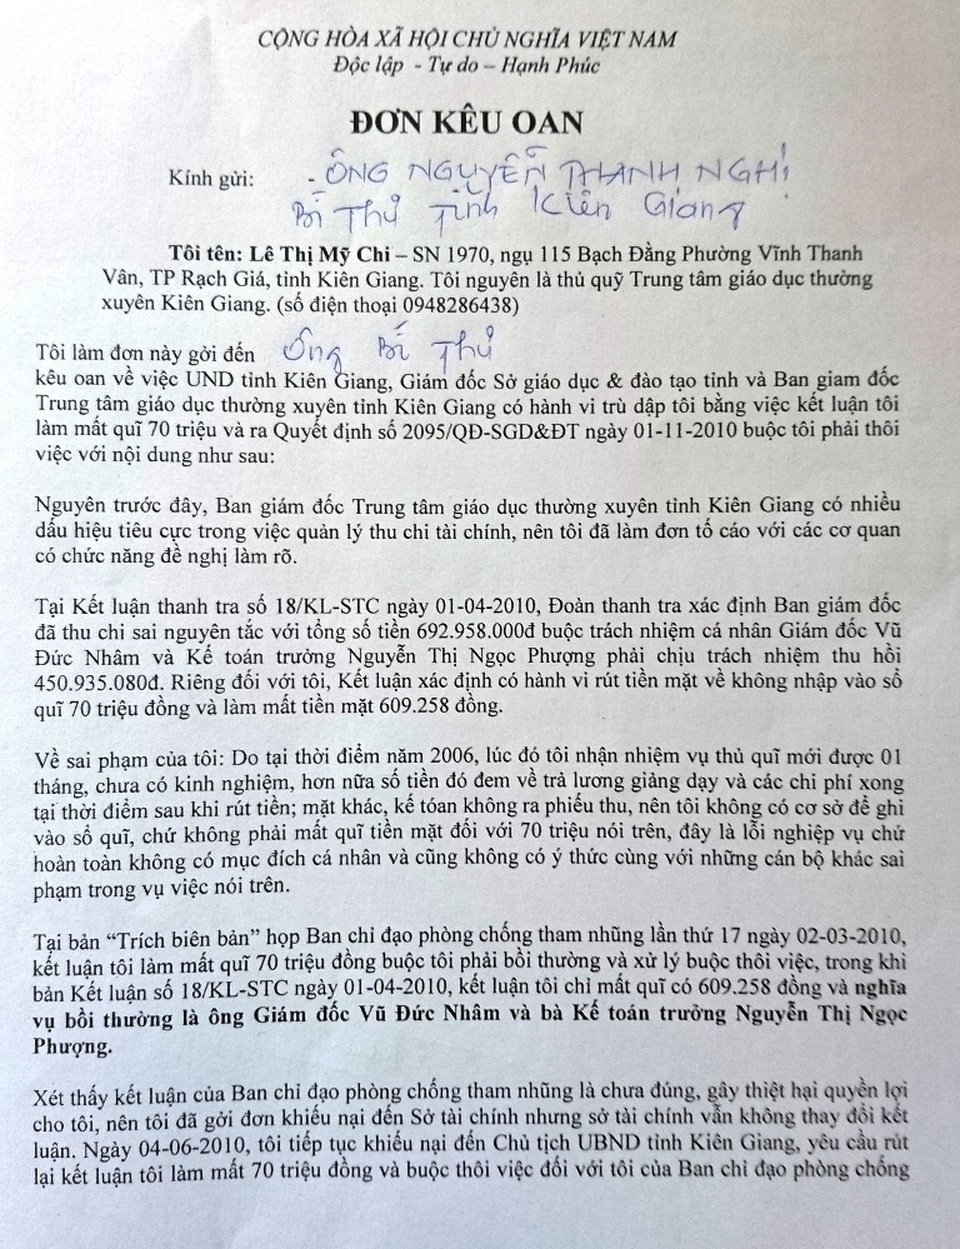 CỘNG HÒA XÃ HỘI CHỦ NGHĨA VIỆT NAM
Độc lập - Tự do – Hạnh Phúc
ĐƠN KÊU OAN
Kính gửi: - ÔNG NGUYỄN THANH NGHỊ
Bí Thư Tỉnh Kiên Giang
Tôi tên: Lê Thị Mỹ Chi – SN 1970, ngụ 115 Bạch Đằng Phường Vĩnh Thanh
Vân, TP Rạch Giá, tỉnh Kiên Giang. Tôi nguyên là thủ quỹ Trung tâm giáo dục thường
xuyên Kiên Giang. (số điện thoại 0948286438)
Tôi làm đơn này gởi đến Ông Bí Thư
kêu oan về việc UND tỉnh Kiên Giang, Giám đốc Sở giáo dục & đào tạo tỉnh và Ban giam đốc
Trung tâm giáo dục thường xuyên tỉnh Kiên Giang có hành vi trù dập tôi bằng việc kết luận tôi
làm mất quĩ 70 triệu và ra Quyết định số 2095/QĐ-SGD&ĐT ngày 01-11-2010 buộc tôi phải thôi
việc với nội dung như sau:
Nguyên trước đây, Ban giám đốc Trung tâm giáo dục thường xuyên tỉnh Kiên Giang có nhiều
dấu hiệu tiêu cực trong việc quản lý thu chi tài chính, nên tôi đã làm đơn tố cáo với các cơ quan
có chức năng đề nghị làm rõ.
Tại Kết luận thanh tra số 18/KL-STC ngày 01-04-2010, Đoàn thanh tra xác định Ban giám đốc
đã thu chi sai nguyên tắc với tổng số tiền 692.958.000đ buộc trách nhiệm cá nhân Giám đốc Vũ
Đức Nhâm và Kế toán trưởng Nguyễn Thị Ngọc Phượng phải chịu trách nhiệm thu hồi
450.935.080đ. Riêng đối với tôi, Kết luận xác định có hành vi rút tiền mặt về không nhập vào sổ
quĩ 70 triệu đồng và làm mất tiền mặt 609.258 đồng.
Về sai phạm của tôi: Do tại thời điểm năm 2006, lúc đó tôi nhận nhiệm vụ thủ quĩ mới được 01
tháng, chưa có kinh nghiệm, hơn nữa số tiền đó đem về trả lương giảng dạy và các chi phí xong
tại thời điểm sau khi rút tiền; mặt khác, kế tóan không ra phiếu thu, nên tôi không có cơ sở để ghi
vào sổ quĩ, chứ không phải mất quĩ tiền mặt đối với 70 triệu nói trên, đây là lỗi nghiệp vụ chứ
hoàn toàn không có mục đích cá nhân và cũng không có ý thức cùng với những cán bộ khác sai
phạm trong vụ việc nói trên.
Tại bản “Trích biên bản” họp Ban chỉ đạo phòng chống tham nhũng lần thứ 17 ngày 02-03-2010,
kết luận tôi làm mất quĩ 70 triệu đồng buộc tôi phải bồi thường và xử lý buộc thôi việc, trong khi
bản Kết luận số 18/KL-STC ngày 01-04-2010, kết luận tôi chỉ mất quĩ có 609.258 đồng và nghĩa
vụ bồi thường là ông Giám đốc Vũ Đức Nhâm và bà Kế toán trưởng Nguyễn Thị Ngọc
Phượng.
Xét thấy kết luận của Ban chỉ đạo phòng chống tham nhũng là chưa đúng, gây thiệt hại quyền lợi
cho tôi, nên tôi đã gởi đơn khiếu nại đến Sở tài chính nhưng sở tài chính vẫn không thay đổi kết
luận. Ngày 04-06-2010, tôi tiếp tục khiếu nại đến Chủ tịch UBND tỉnh Kiên Giang, yêu cầu rút
lại kết luận tôi làm mất 70 triệu đồng và buộc thôi việc đối với tôi của Ban chỉ đạo phòng chống